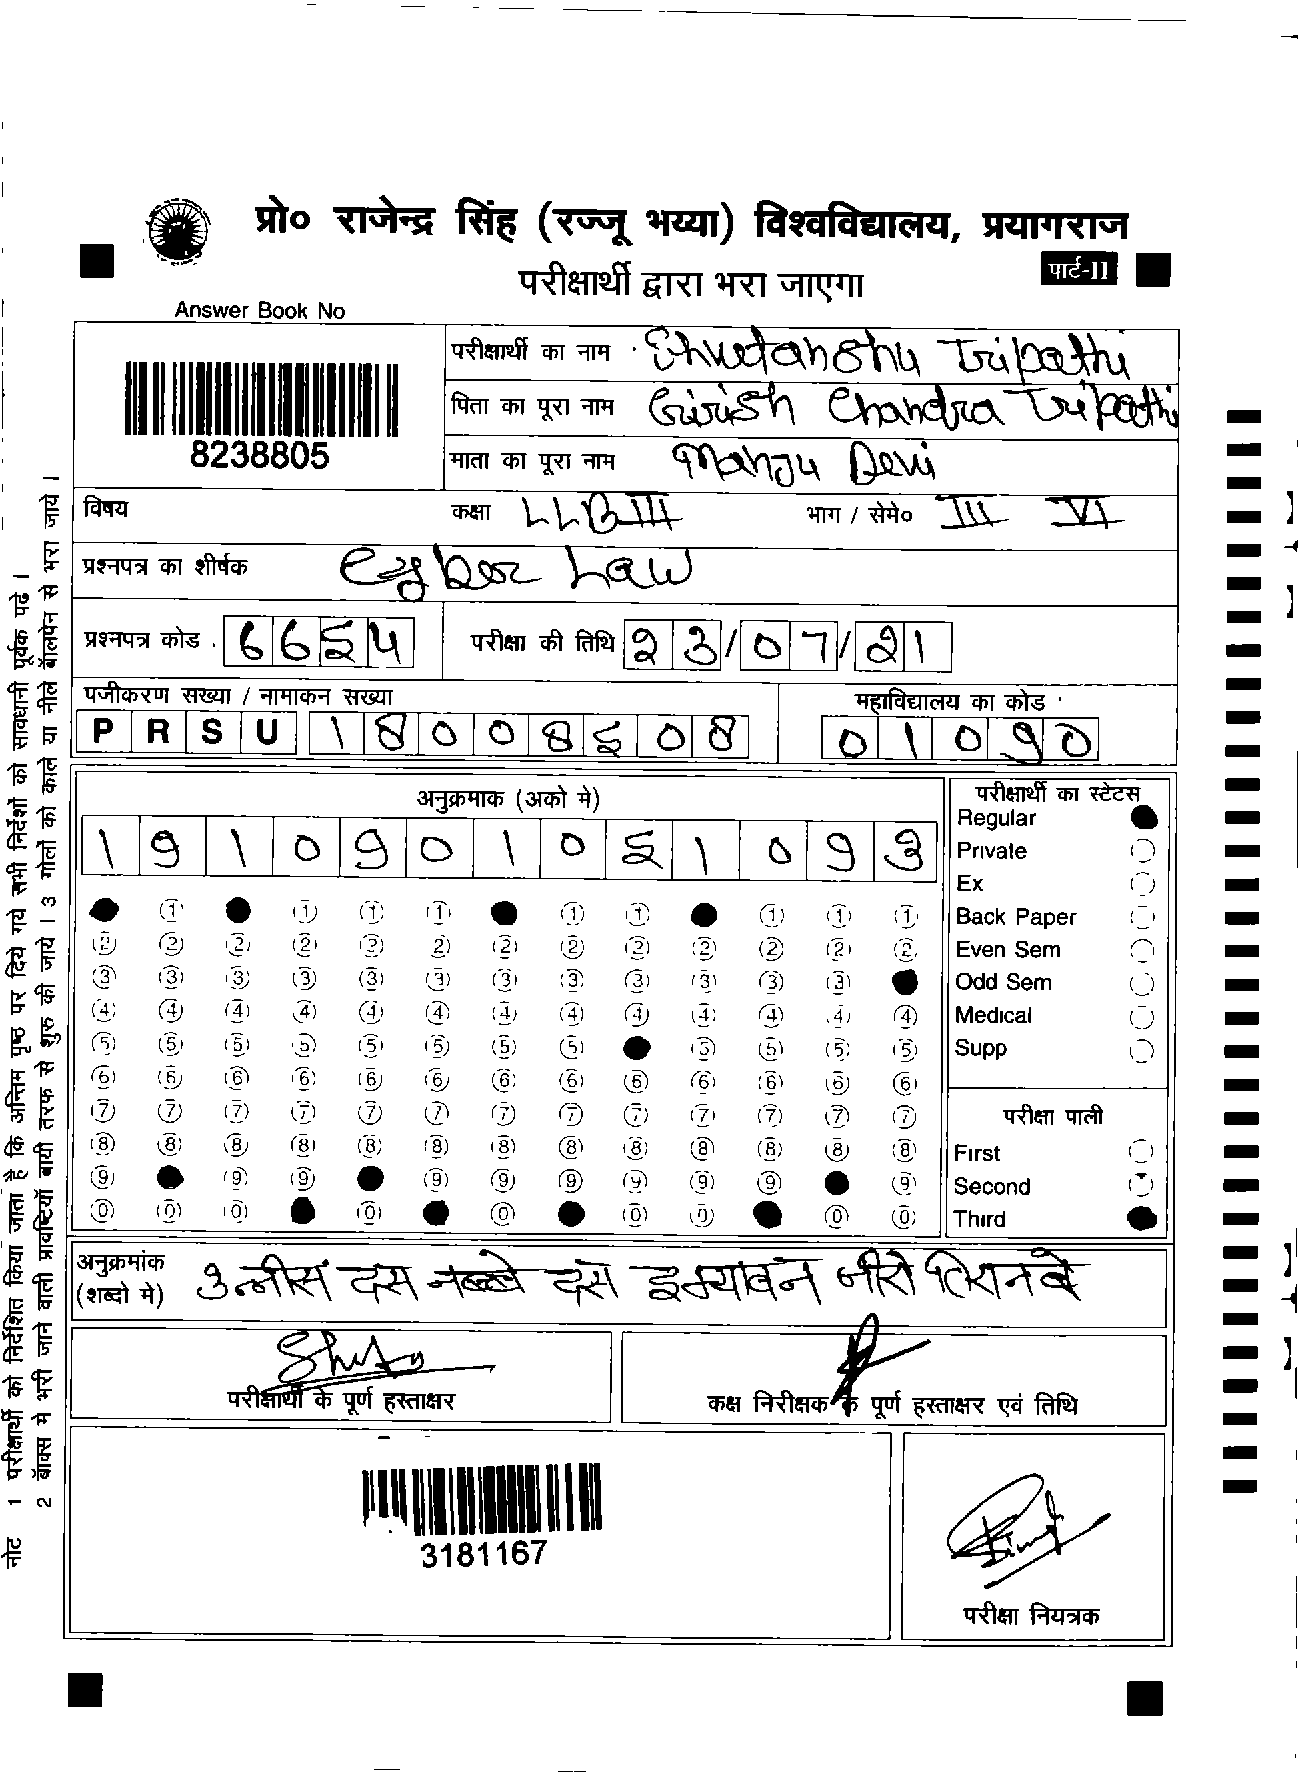 प्रो० राजेन्द्र सिंह (रज्जू भय्या) विश्वविद्यालय, प्रयागराज
परीक्षार्थी द्वारा भरा जाएगा
पार्ट-II
Answer Book No
8238805
परीक्षार्थी का नाम Shvetanshu Tripathi
पिता का पूरा नाम Girish Chandra Tripathi
माता का पूरा नाम Manju Devi
विषय
कक्षा LLB III
भाग / सेमे० III VI
प्रश्नपत्र का शीर्षक Cyber Law
प्रश्नपत्र कोड 6654
परीक्षा की तिथि 23/07/21
पजीकरण सख्या / नामाकन सख्या
PRSU 18008508
महाविद्यालय का कोड
01090
अनुक्रमाक (अको मे)
1 9 1 0 9 0 1 0 5 1 0 9 3
1 1 1 1 1 1 1 1 1
2 2 2 2 2 2 2 2 2 2 2 2 2
3 3 3 3 3 3 3 3 3 3 3 3
4 4 4 4 4 4 4 4 4 4 4 4 4
5 5 5 5 5 5 5 5 5 5 5 5
6 6 6 6 6 6 6 6 6 6 6 6 6
7 7 7 7 7 7 7 7 7 7 7 7 7
8 8 8 8 8 8 8 8 8 8 8 8 8
9 9 9 9 9 9 9 9 9 9
0 0 0 0 0 0 0 0 0
परीक्षार्थी का स्टेटस
Regular
Private
Ex
Back Paper
Even Sem
Odd Sem
Medical
Supp
परीक्षा पाली
First
Second
Third
अनुक्रमांक
(शब्दो मे) उन्नीस दस नब्बे दस इक्यावन जीरो तिरानवे
परीक्षार्थी के पूर्ण हस्ताक्षर
कक्ष निरीक्षक के पूर्ण हस्ताक्षर एवं तिथि
3181167
परीक्षा नियत्रक
नोट 1 परीक्षार्थी को निर्देशित किया जाता है कि अन्तिम पृष्ठ पर दिये गये सभी निर्देशों को सावधानी पूर्वक पढे ।
2 बॉक्स मे भरी जाने वाली प्रविष्टियों बायी तरफ से शुरु की जाये । 3 गोलों को काले या नीले बॉलपेन से भरा जाये ।